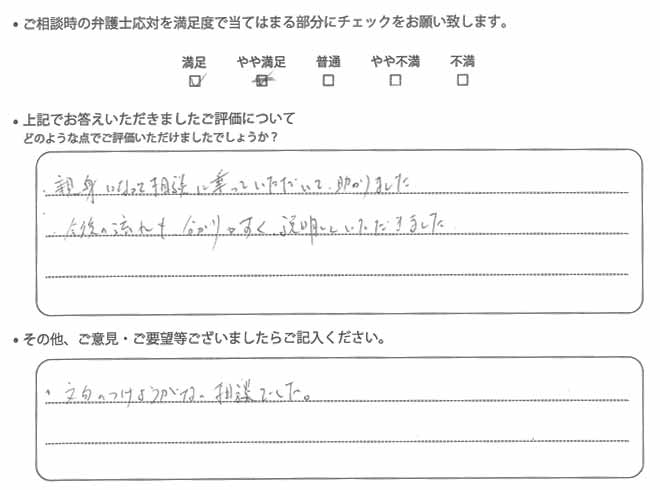 ・ご相談時の弁護士応対を満足度で当てはまる部分にチェックをお願い致します。
満足 やや満足 普通 やや不満 不満
・上記でお答えいただきましたご評価について
どのような点でご評価いただけましたでしょうか？
・親身になって相談に乗っていただいて、助かりました
・今後の流れも分かりやすく説明していただきました
・その他、ご意見・ご要望等ございましたらご記入ください。
・文句のつけようがない相談でした。